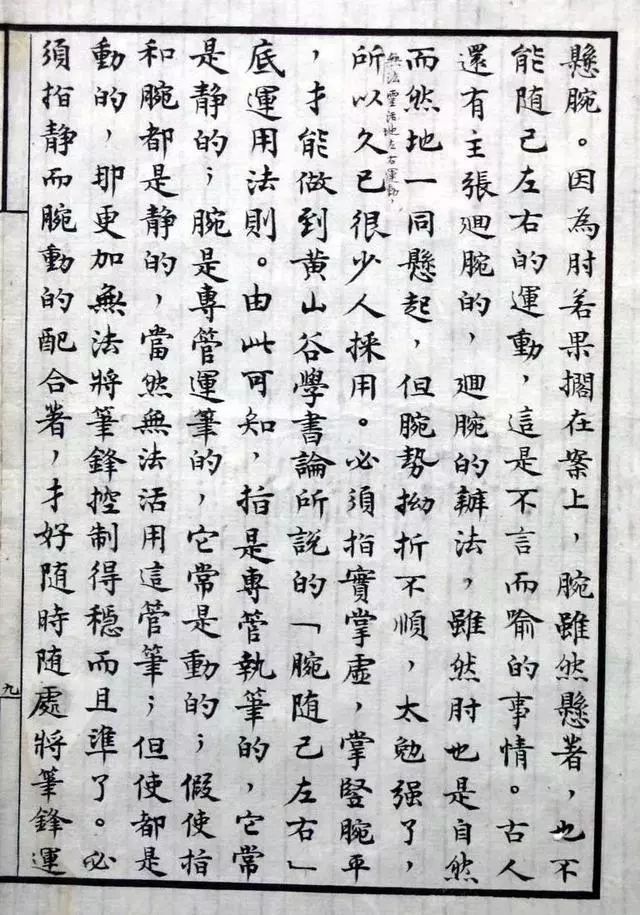 懸腕。因為肘若果擱在案上，腕雖然懸著，也不
能隨己左右的運動，這是不言而喻的事情。古人
還有主張廻腕的，廻腕的辦法，雖然肘也是自然
而然地一同懸起，但腕勢拗折不順，太勉强了，
無法靈活地左右運動，
所以久已很少人採用。必須指實掌虛，掌竪腕平
，才能做到黄山谷學書論所説的「腕随己左右」
底運用法則。由此可知，指是專管執筆的，它常
是静的；腕是專管運筆的，它常是動的；假使指
和腕都是静的，當然無法活用這管筆；但使都是
動的，那更加無法將筆鋒控制得穩而且準了。必
須指静而腕動的配合著，才好随時随處將筆鋒運
九